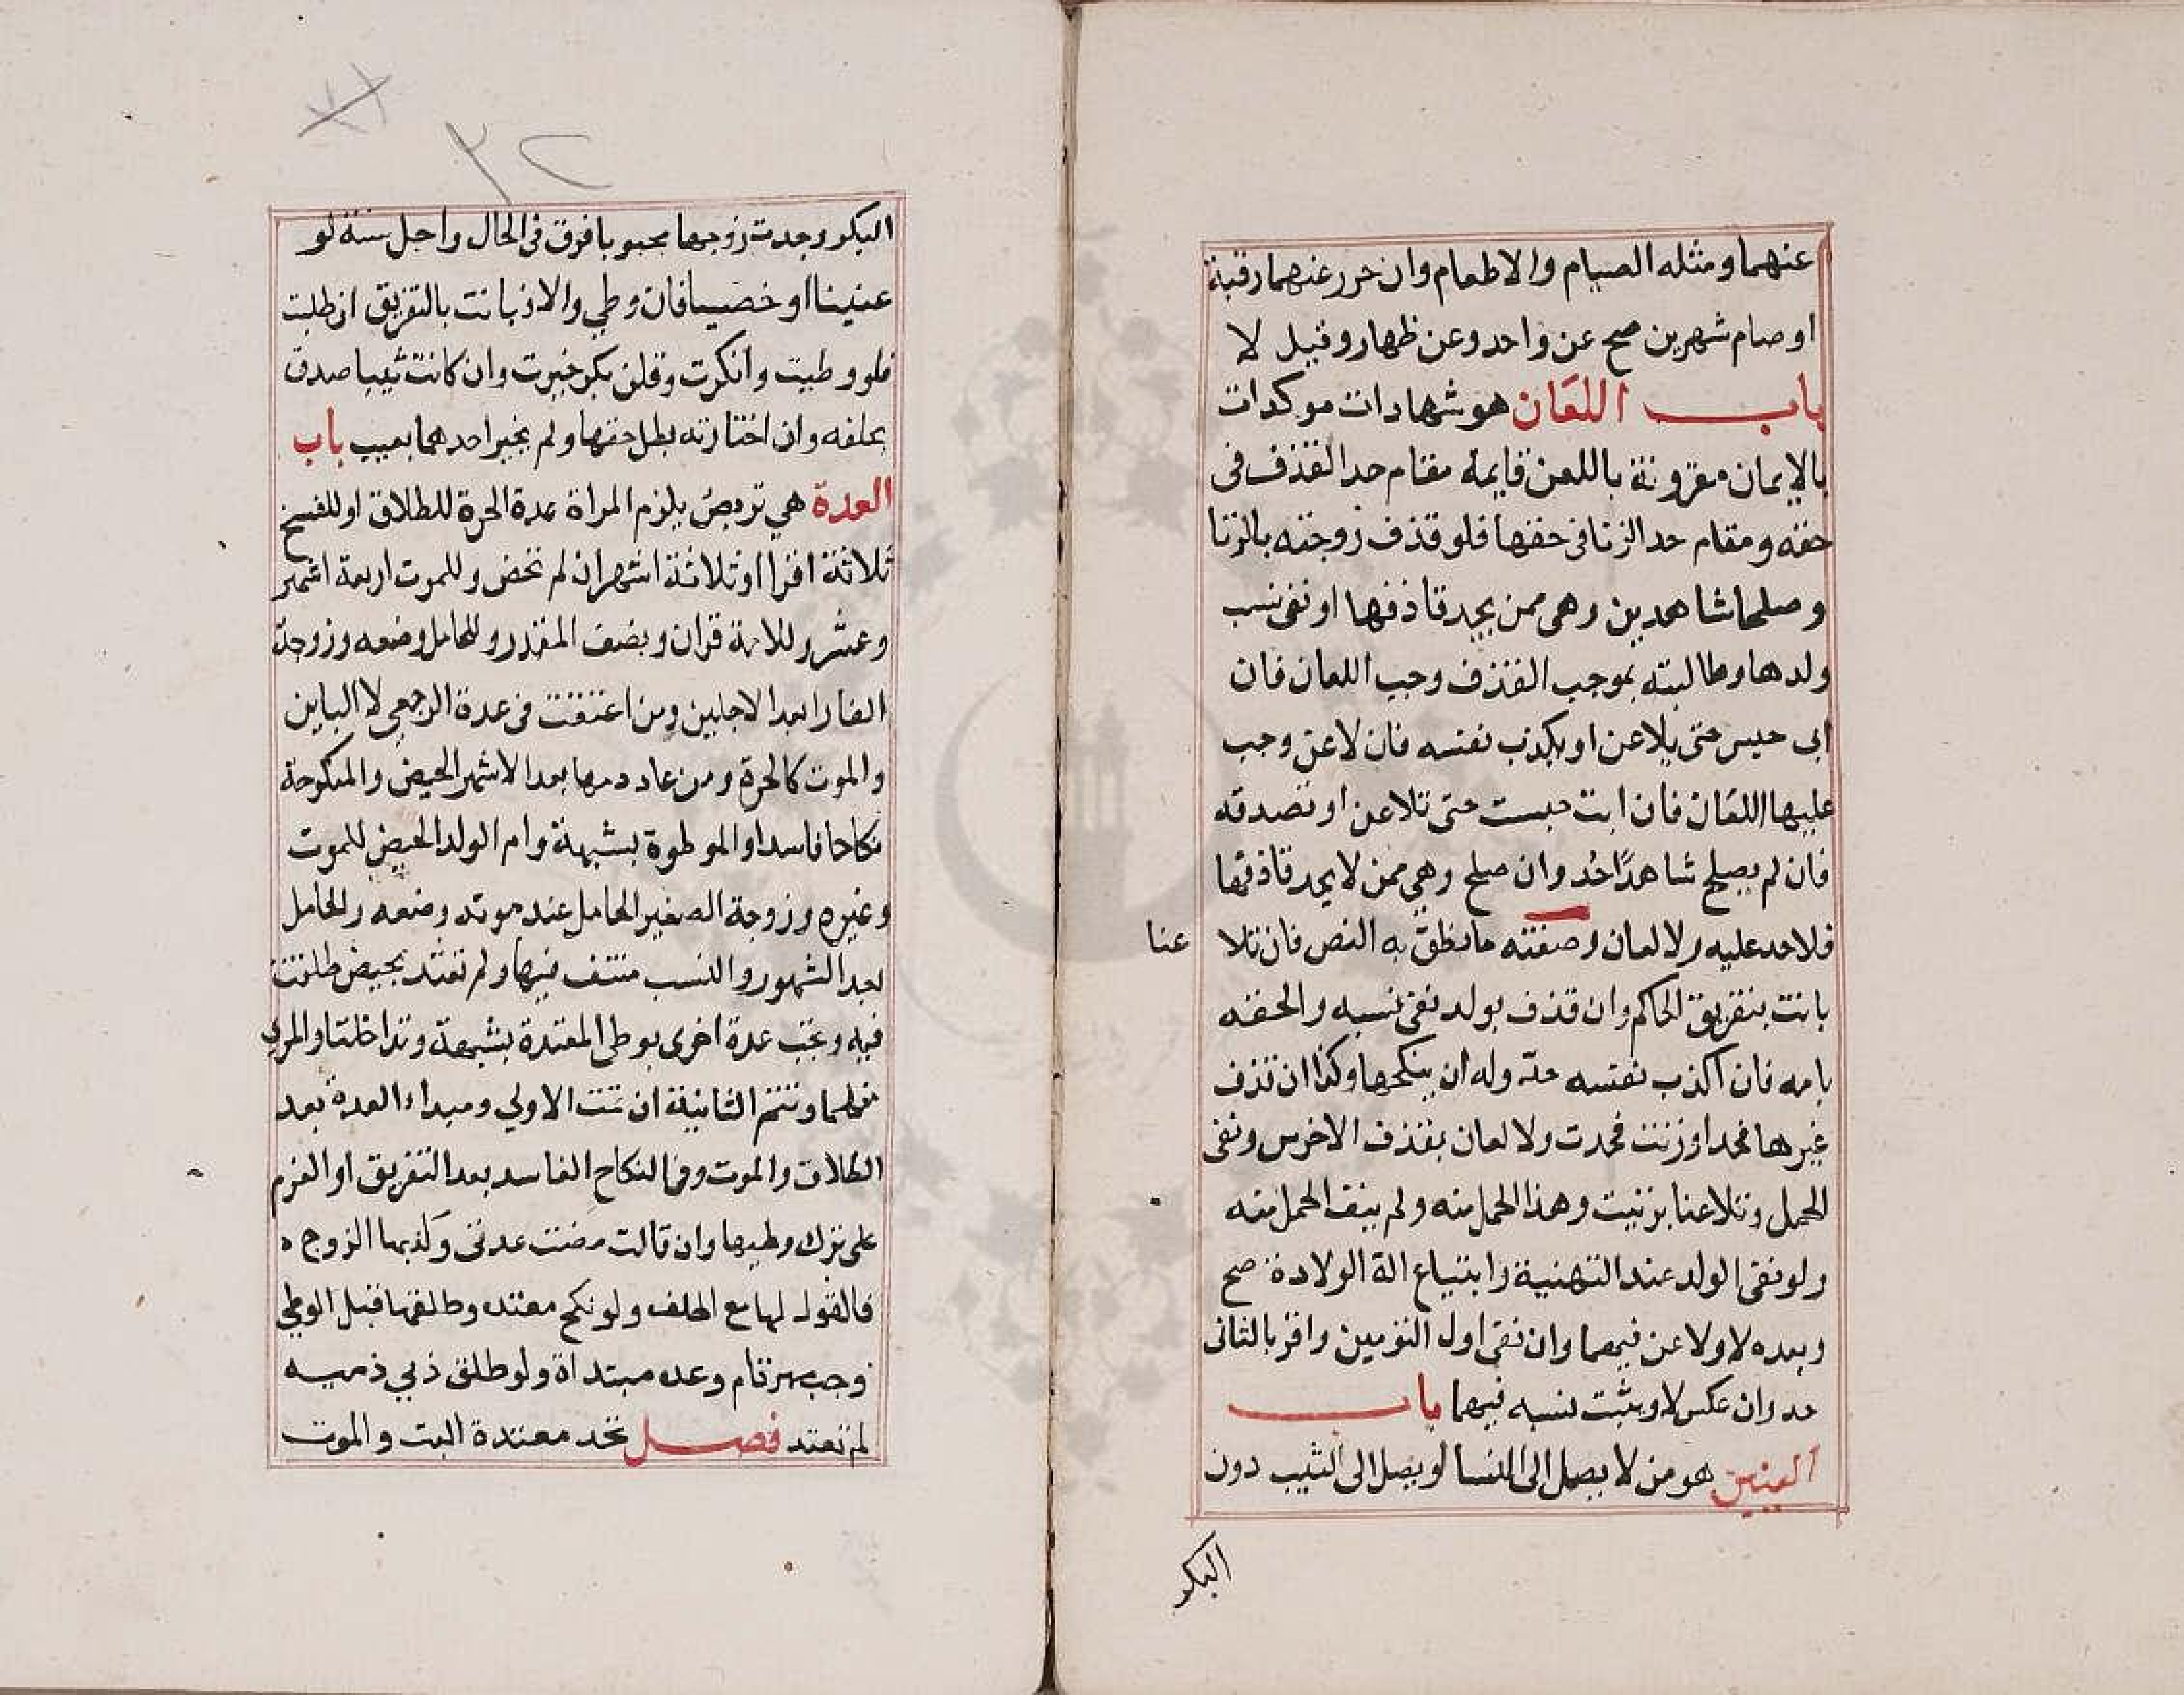 عنهما ومثله الصيام والاطعام وان حرر عنهما رقبة
او صام شهرين صح عن واحد وعن ظهار وقيل لا
باب اللعان هو شهادات موكدات
بالايمان مقرونة باللعن قايمة مقام حد القذف فى
حقه ومقام حد الزنا فى حقها فلو قذف زوجته بالزنا
وصلحا شاهدين وهى ممن يحد قاذفها او نفى نسب
ولدها وطالبته بموجب القذف وجب اللعان فان
ابى حبس حتى يلاعن او يكذب نفسه فان لاعن وجب
عليها اللعان فان ابت حبست حتى تلاعن او تصدقه
فان لم يصلح شاهدًا حُد وان صلح وهى ممن لا يحد قاذفها
فلا حد عليه ولا لعان وصفته ما نطق به النص فان تلا عنا
بانت بتفريق الحاكم وان قذف بولد نفى نسبه والحقه
بامه فان اكذب نفسه حد وله ان ينكحها وكذا ان قذف
غيرها فحد او زنت فحدت ولا لعان بقذف الاخرس ونفى
الحمل وتلاعنا بزنيت وهذا الحمل منه ولم ينف الحمل منه
ولو نفى الولد عند التهنية وابتياع الة الولادة صح
وبعده لا ولاعن فيهما وان نفى اول التومين واقر بالثانى
حد وان عكس لا ويثبت نسبه فيهما باب
العنين هو من لا يصل الى النسا او يصل الى الثيب دون
البكر
٣٢
البكر وجدت زوجها مجبوبا فرق فى الحال واجل سنة لو
عنينا او خصيا فان وطى والا بانت بالتفريق ان طلبت
فلو وطيت وانكرت وقلن بكر خيرت وان كانت ثيبا صدق
بحلفه وان اختارته بطل حقها ولم يخير احدهما بعيب باب
العدة هي تربص يلزم المراة عدة الحرة للطلاق او للفسخ
ثلاثة اقرا او ثلاثة اشهر ان لم تحض وللموت اربعة اشهر
وعشر وللامة قران ونصف المقدر وللحامل وضعه وزوجة
الفار ابعد الاجلين ومن اعتقت فى عدة الرجعى لا الباين
والموت كالحرة ومن عاد دمها بعد الاشهر الحيض والمنكوحة
نكاحا فاسدا والموطوة بشبهة وام الولد الحيض للموت
وغيره وزوجة الصغير الحامل عند موته وضعه والحامل
بعد الشهور والنسب منتف فيها ولم تعتد بحيض طلقت
فيه وتجب عدة اخرى بوطى المعتدة بشبهة وتداخلتا والمرى
منهما وتتم الثانية ان تمت الاولى ومبدا العدة بعد
الطلاق والموت وفى النكاح الفاسد بعد التفريق او العزم
على ترك وطيها وان قالت مضت عدتى وكذبها الزوج
فالقول لها مع الحلف ولو نكح معتده وطلقها قبل الوطى
وجب مهر تام وعده مبتداة ولو طلق ذمي ذميه
لم تعتد فصل تحد معتدة البت والموت